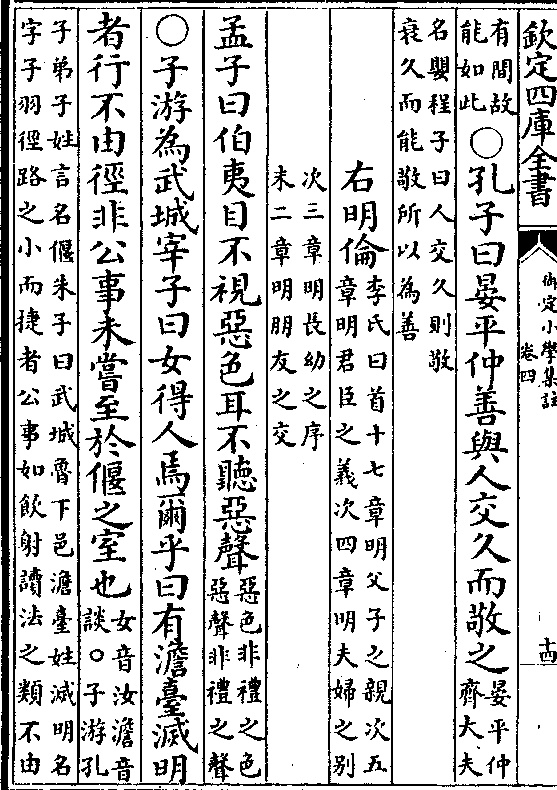 欽定四庫全書
御定小學集註
卷四
十四
有間故
能如此
○孔子曰晏平仲善與人交久而敬之
晏平仲
齊大夫
名嬰程子曰人交久則敬
衰久而能敬所以為善
右明倫
李氏曰首十七章明父子之親次五
章明君臣之義次四章明夫婦之别
次三章明長幼之序
末二章明朋友之交
孟子曰伯夷目不視惡色耳不聽惡聲
惡色非禮之色
惡聲非禮之聲
○子游為武城宰子曰女得人焉爾乎曰有澹臺滅明
者行不由徑非公事未嘗至於偃之室也
女音汝澹音
談○子游孔
子弟子姓言名偃朱子曰武城魯下邑澹臺姓滅明名
字子羽徑路之小而捷者公事如飲射讀法之類不由